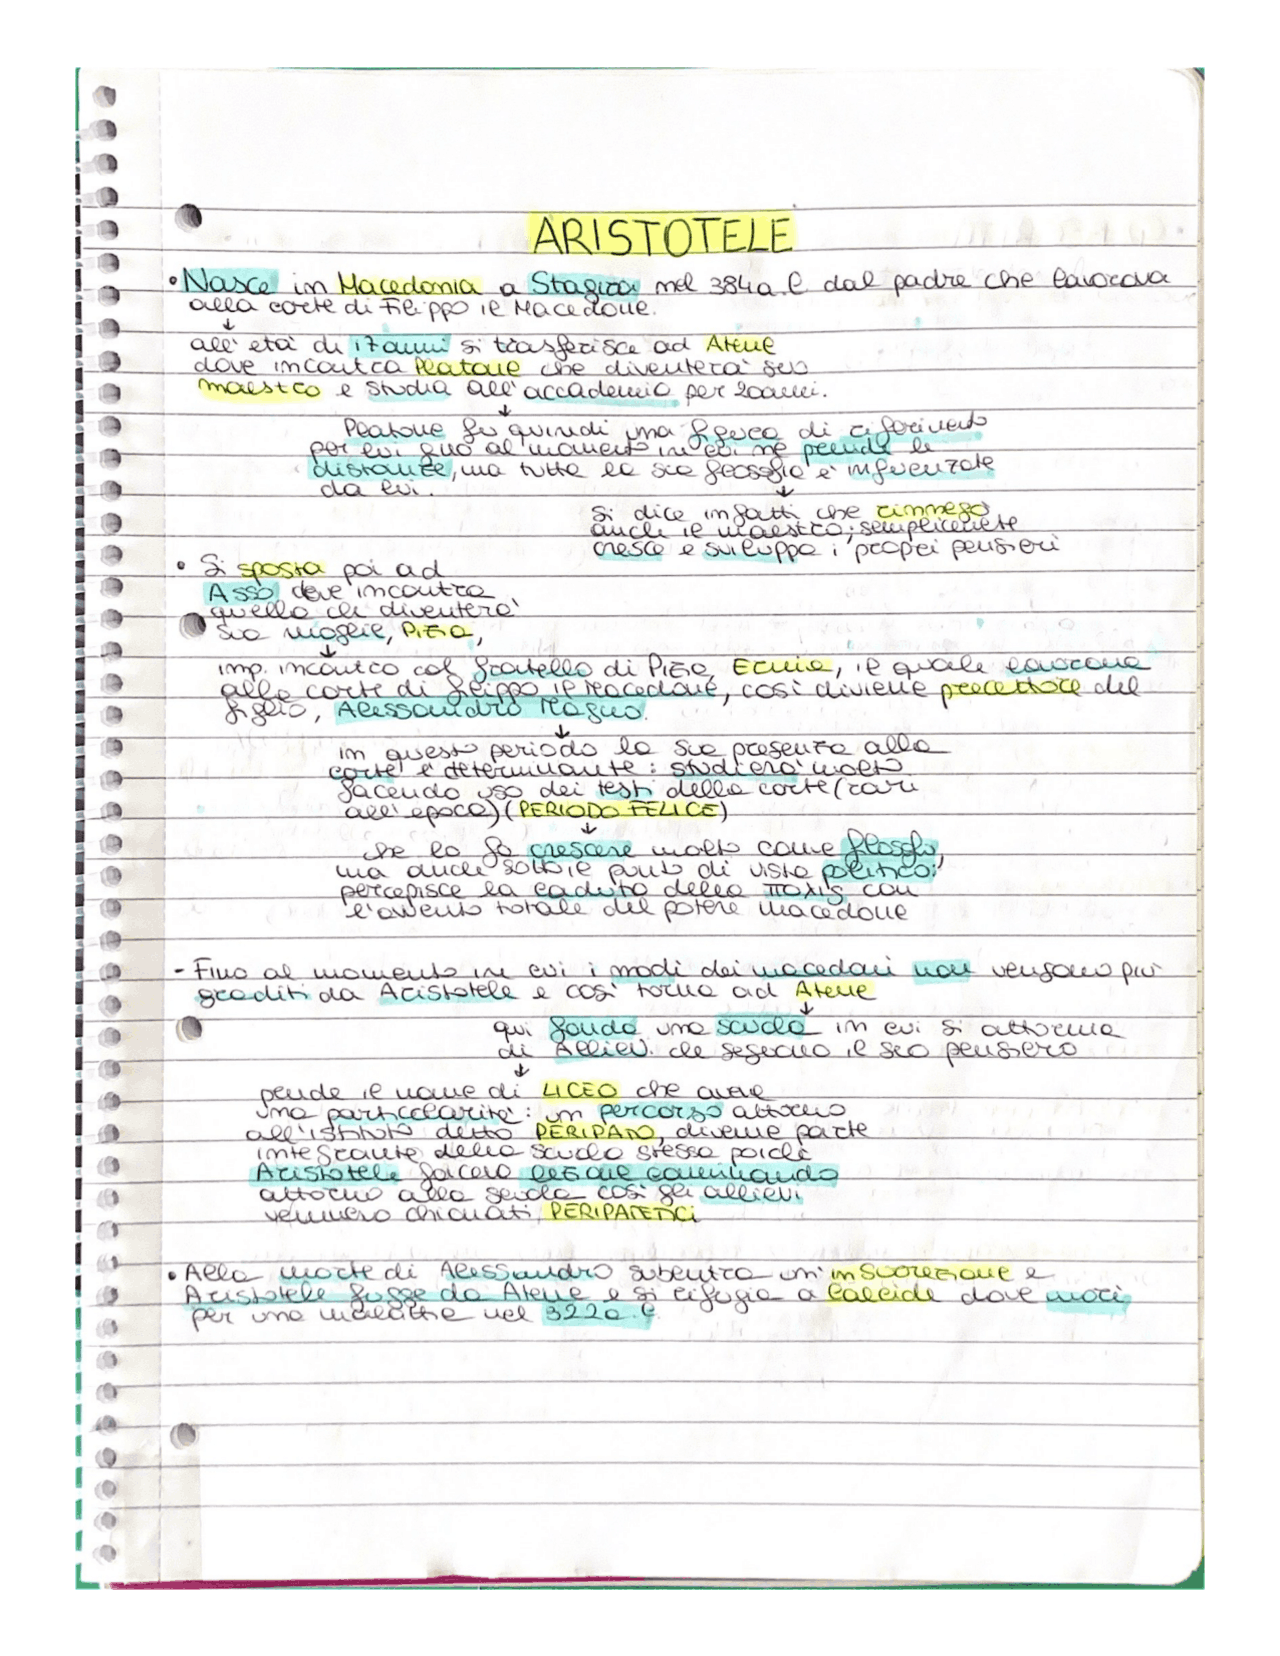 ARISTOTELE
• Nasce in Macedonia a Stagira nel 384 a.C dal padre che lavorava
alla corte di Filippo il Macedone.
↓
all'età di 17 anni si trasferisce ad Atene
dove incontra Platone che diventerà suo
maestro e studia all'accademia per 20 anni.
↓
Platone fu quindi una figura di riferimento
per lui fino al momento in cui ne prende le
distanze, ma tutta la sua filosofia è influenzata
da lui.
↓
Si dice infatti che rinnegò
anche il maestro; semplicemente
cresce e sviluppa i propri pensieri
• Si sposta poi ad
Asso dove incontra
quella che diventerà
sua moglie, Pizia,
↓
imp. incontro col fratello di Pizia, Ermia, il quale lavorava
alla corte di Filippo il Macedone, così diviene precettore del
figlio, Alessandro Magno.
↓
in questo periodo la sua presenza alla
corte è determinante: studierà molto
facendo uso dei testi della corte (rari
all'epoca) (PERIODO FELICE)
↓
che lo fa crescere molto come filosofo,
ma anche sotto il punto di vista politico:
percepisce la caduta della πολις con
l'avvento totale del potere macedone
- Fino al momento in cui i modi dei macedoni non vengono più
graditi da Aristotele e così torna ad Atene
↓
qui fonda una scuola in cui si attornia
di Allievi che seguono il suo pensiero
↓
prende il nome di LICEO che aveva
una particolarità: un percorso attorno
all'istituto detto PERIPATO, divenne parte
integrante della scuola stessa poiché
Aristotele faceva lezione camminando
attorno alla scuola così gli allievi
vennero chiamati PERIPATETICI
• Alla morte di Alessandro subentra un'insurrezione e
Aristotele fugge da Atene e si rifugia a Calcide dove morì
per una malattia nel 322 a.C.